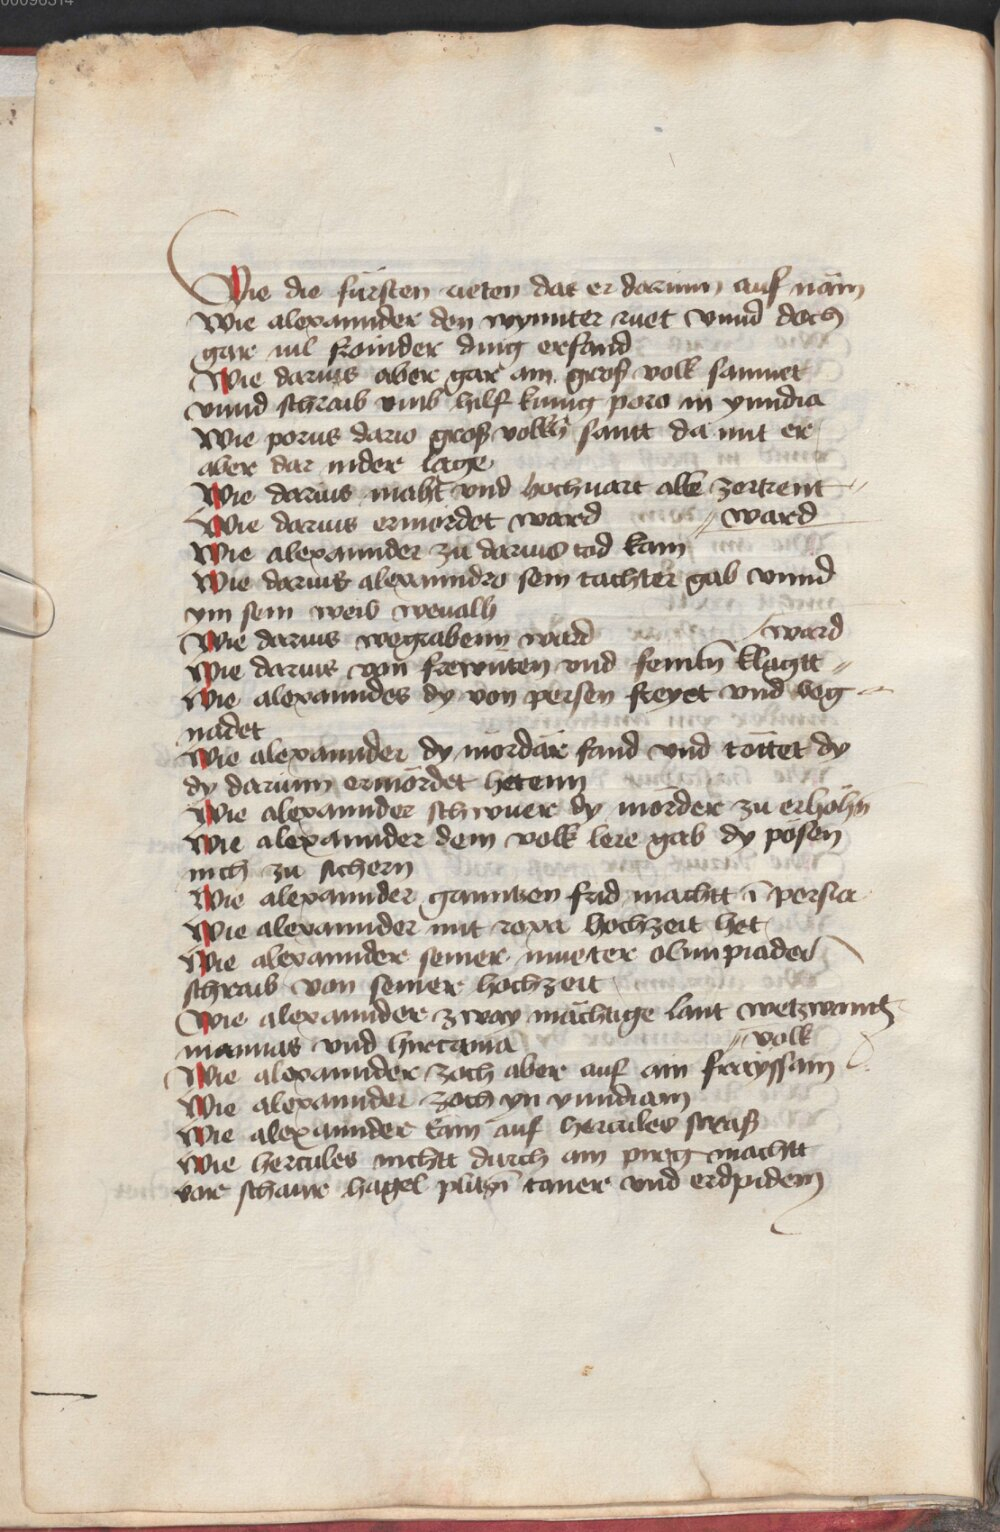 Wie die fürsten rieten das er darium auf näm
Wie alexannder den wynnter ruet vnnd doch
gar vil fromder ding erfand
Wie darius aber gar ain groß volk samnet
vnnd schraib vmb hilf kunig poro in yndia
Wie porus dario groß volkh santt da mit er
aber dar nider lage
Wie darius maht vnd hochuart alle zertrent
Wie darius ermordet ward // ward
Wie alexannder zu darius tod kam
Wie darius alexanndro sein tachter gab vnnd
ym sein weib wevalh
Wie darius wegrabenn ward / ward
Wie darius von frewnten vnd feintn klagtt //
Wie alexanndes dy von persen freyet vnd beg
nadet
Wie alexannder dy mordär fand vnd töttet dy
dy darium ermördet hetenn
Wie alexannder schwuer dy mörder zu erhöhn
Wie alexannder dem volk lere gab dy pösen
nich zu sichern
Wie alexannder ganntzen frid machtt i persia
Wie alexannder mit roxa hochzeit het
Wie alexannder seiner mueter olimpiades
schraib von seiner hochzeit
Wie alexannder zway mächtige lant wetzwantz
mannas vnd hircania // volk
Wie alexannder zoch aber auf ain frayssam
Wie alexannder zoch yn yndiam
Wie alexannder kam auf hercules straß
Wie hercules nichtt durch ain pirg machtt
vor schawr hagel platzn toner vnd erdpidem